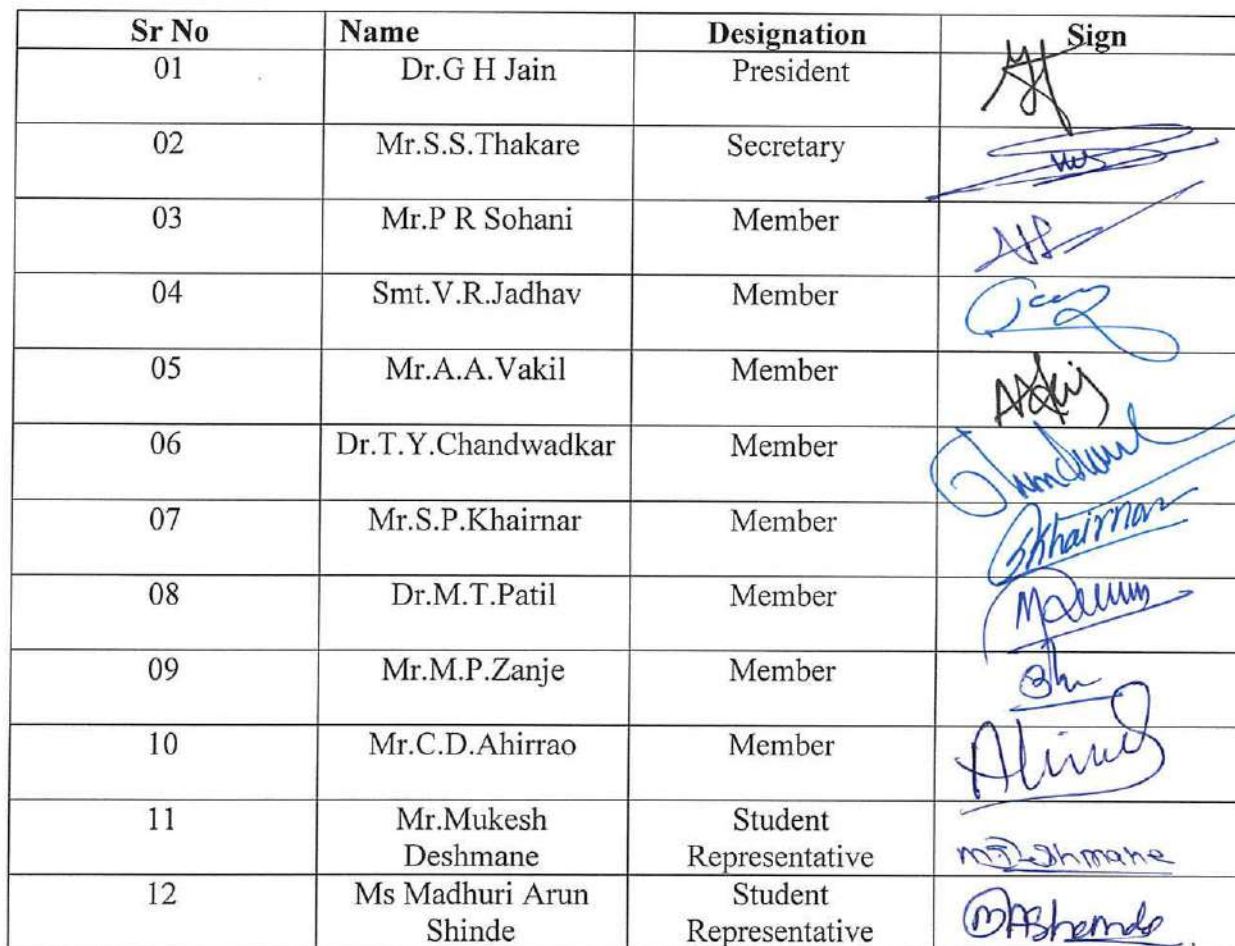 Sr No Name Designation Sign
01 Dr.G H Jain President
02 Mr.S.S.Thakare Secretary
03 Mr.P R Sohani Member
04 Smt.V.R.Jadhav Member
05 Mr.A.A.Vakil Member
06 Dr.T.Y.Chandwadkar Member
07 Mr.S.P.Khairnar Member SKhairnar
08 Dr.M.T.Patil Member
09 Mr.M.P.Zanje Member
10 Mr.C.D.Ahirrao Member
11 Mr.Mukesh Student
Deshmane Representative
12 Ms Madhuri Arun Student
Shinde Representative